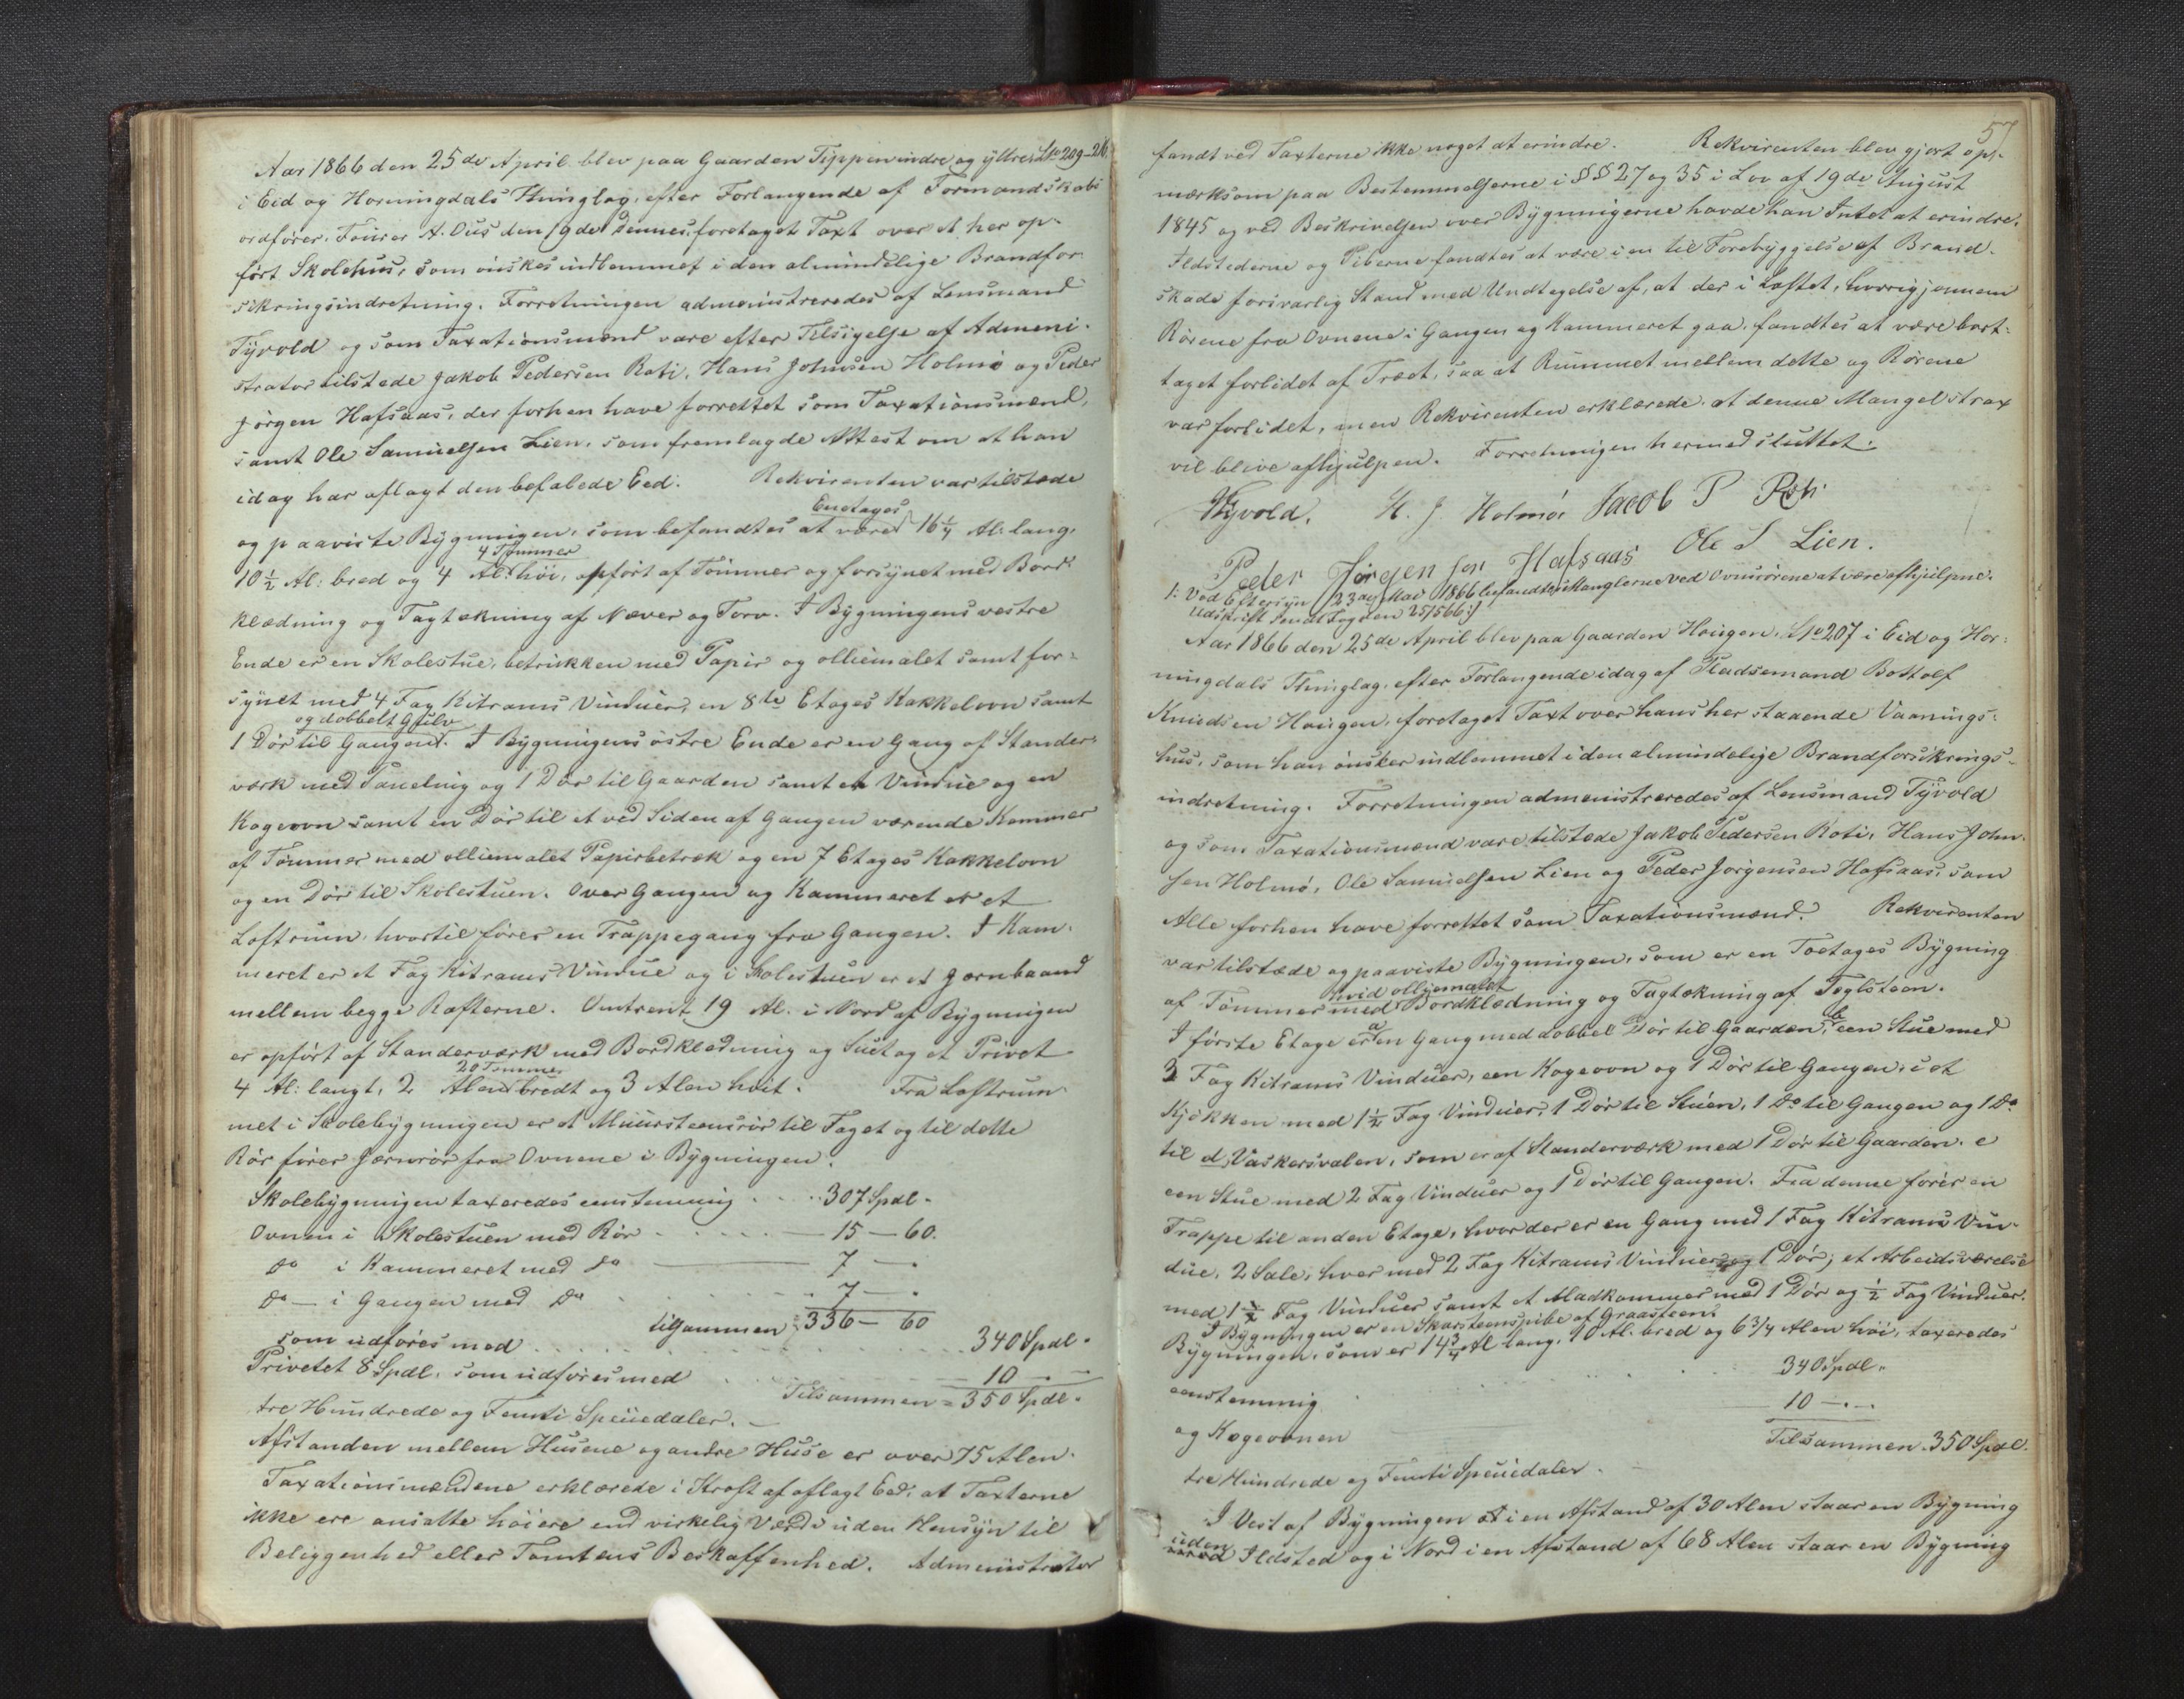 Aar 1866 den 25de April blev paa Gaarden Tippen indre og yttre, Lno 209-210,
i Eid og Horningdals Thinglag, efter Forlangende af Formandskabs
ordfører, Fourer A. Ous den 19de dennes, foretaget Taxt over et her op-
ført Skolehus, som ønskes indlemmet i den almindelige Brandfor
sikringsindretning. Forretningen administreredes af Lensmand
Tyvold og som Taxationsmænd vare efter Tilsigelse af Admini-
strator tilstede Jakob Pedersen Roti, Hans Johnsen Holmø og Peder
Jørgen Hafsaas, der forhen have forrettet som Taxationsmænd,
samt Ole Samuelsen Lien, som fremlagde Attest om at han
idag har aflagt den befalede Eed. Rekvirenten var tilstæde
Enetages
og paaviste Bygningen, som befandtes at være 16 1/4 Al: lang,
4 Tommer
10 1/2 Al: bred og 4 Al: høi, opført af Tømmer og forsynet med Bord
klædning og Tagtækning af Næver og Torv. I Bygningens vestre
Ende er en Skolestue, betrukken med Papir og olliemalet samt for-
synet med 4 Fag Kitrams Vinduer, en 8te Etages Kakkelovn samt
og dobbelt Gulv
1 Dør til Gangen. I Bygningens østre Ende er en Gang af Stander-
værk med Panelnig og 1 Dør til Gaarden samt et Vindue og en
Kogeovn samt en Dør til et ved Siden af Gangen værende Kammer
af Tømmer med olliemalet Papirbetræk og en 7 Etages Kakkelovn
og en Dør til Skolestuen. Over Gangen og Kammeret er et
Loftrum, hvortil fører en Trappegang fra Gangen. I Kam-
meret er et Fag Kitrams Vindue og i Skolestuen er et Jernbaand
mellem begge Rafterne. Omtrent 19 Al. i Nord af Bygningen
er opført af Standerværk med Bordklædning og Sutag et Privet
20 Tommer
4 Al: langt, 2 Alen bredt og 3 Alen høit. Fra Loftrum
met i Skolebygningen er et Muursteensrør til Taget og til dette
Rør fører Jernrør fra Ovnene i Bygningen.
Skolebygningen taxeredes eenstemmig . . . . 307 Spdl.
Ovnen i Skolestuen med Rør . . . . . — 15 — 60.
do i Kammeret med do — 7 — .
do — i Gangen med do . . . . 7 — .
tilsammen 336 — 60
som udføres med . . . . 340 Spdl.
Privetet 8 Spdl. som udføres med . . . 10 — . —
Tilsammen = 350 Spdl.
tre Hundrede og Femti Speciedaler. —
Afstanden mellem Husene og andre Huse er over 75 Alen.
Taxationsmændene erklærede i Kraft af aflagt Eed, at Taxterne
ikke ere ansatte høiere end virkelig Værdi uden Hensyn til
Beliggenhed eller Tomtens Beskaffenhed. Administrator
57
fandt ved Taxterne ikke noget at erindre. Rekvirenten blev gjort op-
mærksom paa Bestemmelserne i §§ 27 og 35 i Lov af 19de August
1845 og ved Beskrivelsen over Bygningerne havde han Intet at erindre.
Ildstederne og Piberne fandtes at være i en til Forebyggelse af Brand-
skade forsvarlig Stand med Undtagelse af, at der i Loftet, hvorigjennem
Rørene fra Ovnene i Gangen og Kammeret gaa, fandtes at være bort-
taget forlidet af Træet, saa at Rummet mellem dette og Rørene
var forlidet, men Rekvirenten erklærede, at denne Mangel strax
vil blive afhjulpen. Forretningen hermed sluttet.
Tyvold. H. J. Holmø. Jacob P Roti
Peder Jørgensen Hafsaas Ole S Lien.
/: Ved Eftersyn 23de Mai 1866 befandtes Manglerne ved Ovnsrørene at være afhjulpne.
Udskrift sendt Fogden 25/5 66 :/
Aar 1866 den 25de April blev paa Gaarden Hougen, Lno 207 i Eid og Hor-
ningdals Thinglag, efter Forlangende idag af Pladsemand Bottolf
Knudsen Hougen, foretaget Taxt over hans her staaende Vaanings-
hus, som han ønsker indlemmet i den almindelige Brandforsikrings-
indretning. Forretningen administreredes af Lensmand Tyvold
og som Taxationsmænd vare tilstede Jakob Pedersen Roti, Hans John-
sen Holmø, Ole Samuelsen Lien og Peder Jørgensen Hafsaas, som
Alle forhen have forrettet som Taxationsmænd. Rekvirenten
var tilstæde og paaviste Bygningen, som er en Toetages Bygning
hvid olliemalet
af Tømmer med Bordklædning og Tagtækning af Teglsteen.
I første Etage er a en Gang med dobbel Dør til Gaarden, b een Stue med
3 Fag Kitrams Vinduer, een Kogeovn og 1 Dør til Gangen, c et
Kjøkken med 1 1/2 Fag Vinduer, 1 Dør til Stuen, 1 do til Gangen og 1 do
til d, Vaskersvalen, som er af Standerværk med 1 Dør til Gaarden. e
een Stue med 2 Fag Vinduer og 1 Dør til Gangen. Fra denne fører en
Trappe til anden Etage, hvor der er en Gang med 1 Fag Kitrams Vin-
due, 2 Sale, hver med 2 Fag Kitrams Vinduer og 1 Dør; et Arbeidsværelse
med 1 1/2 Fag Vinduer samt et Madkammer med 1 Dør og 1/2 Fag Vinduer.
I Bygningen er en Skorsteenspibe af Graasteen.
Bygningen, som er 14 3/4 Al lang, 10 Al. bred og 6 3/4 Alen høi, taxeredes
eenstemmig . . . 340 Spdl.
og Kogeovnen — 10 — . —
Tilsammen. 350 Spdl.
tre Hundrede og Femti Speciedaler.
I Vest af Bygningen i en Afstand af 30 Alen staar en Bygning
uden Ildsted og i Nord i en Afstand af 68 Alen staar en Bygning